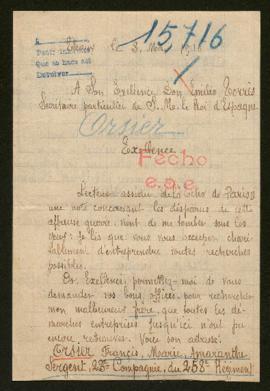 15716
le 3 Mai 1916
A Son Excellence Don Emilio Torrès
Secrétaire particulier de S. M. le Roi d'Espagne
Orsier
Excellence
Fecho
Lecteur assidu de l'Echo de Paris
une note concernant les disparus de cette
affreuse guerre vient de me tomber sous les
yeux: Je lis que vous vous occupez chari-
tablement d'entreprendre toutes recherches
possibles.
Or, Excellence, permettez-moi de vous
demander vos bons offices pour rechercher
mon malheureux frère, que toutes les dé-
marches entreprises jusqu'ici n'ont pu
encore retrouver. Voici son adresse:
Orsier Francis, Marie, Amaranthe
Sergent, 23e Compagnie, du 253e Régiment